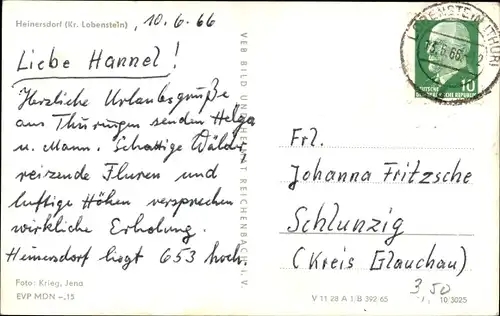 Heinersdorf (Kr. Lobenstein), 10.6.66
Liebe Hannel!
Herzliche Urlaubsgrüße
aus Thüringen senden Helga
u. Mann. Schattige Wälder,
reizende Fluren und
luftige Höhen versprechen
wirkliche Erholung.
Heinersdorf liegt 653 hoch.
Foto: Krieg, Jena
EVP MDN –.15
VEB BILD UND HEIMAT REICHENBACH I. V.
LOBENSTEIN (THÜR)
DEUTSCHE
DEMOKRATISCHE REPUBLIK
10
Frl.
Johanna Fritzsche
Schlunzig
(Kreis Glauchau)
3,50
V 11 28 A 1 B 392 65
10/3025